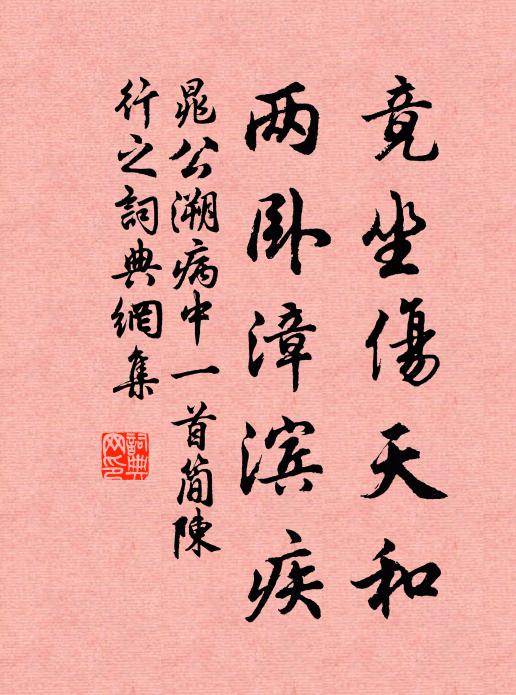 竟坐傷天和
两卧漳滨疾
晁公溯病中一首简陳
行之詞典網集
詞典网印